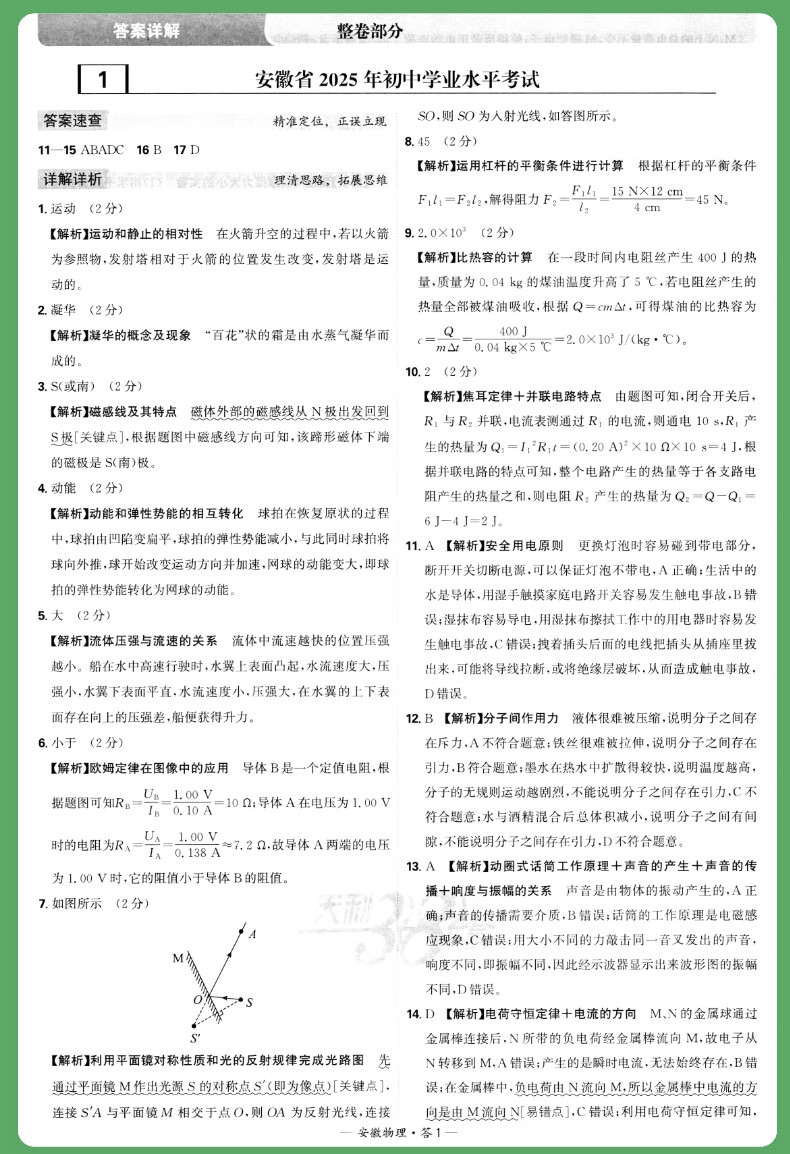 答案详解
整卷部分
1
安徽省 2025 年初中学业水平考试
答案速查 精准定位，正误立现
11—15 ABADC 16 B 17 D
详解详析 理清思路，拓展思维
1. 运动 （2分）
【解析】运动和静止的相对性 在火箭升空的过程中,若以火箭
为参照物,发射塔相对于火箭的位置发生改变,发射塔是运
动的。
2. 凝华 （2分）
【解析】凝华的概念及现象 “百花”状的霜是由水蒸气凝华而
成的。
3. S(或南) （2分）
【解析】磁感线及其特点 磁体外部的磁感线从 N 极出发回到
S 极[关键点],根据题图中磁感线方向可知,该蹄形磁体下端
的磁极是 S(南)极。
4. 动能 （2分）
【解析】动能和弹性势能的相互转化 球拍在恢复原状的过程
中,球拍由凹陷变扁平,球拍的弹性势能减小,与此同时球拍将
球向外推,球开始改变运动方向并加速,网球的动能变大,即球
拍的弹性势能转化为网球的动能。
5. 大 （2分）
【解析】流体压强与流速的关系 流体中流速越快的位置压强
越小。船在水中高速行驶时,水翼上表面凸起,水流速度大,压
强小,水翼下表面平直,水流速度小,压强大,在水翼的上下表
面存在向上的压强差,船便获得升力。
6. 小于 （2分）
【解析】欧姆定律在图像中的应用 导体 B 是一个定值电阻,根
据题图可知R_B=U_B/I_B=1.00 V/0.10 A=10 Ω;导体 A 在电压为 1.00 V
时的电阻为R_A=U_A/I_A=1.00 V/0.138 A≈7.2 Ω,故导体 A 两端的电压
为 1.00 V 时,它的阻值小于导体 B 的阻值。
7. 如图所示 （2分）
A
M
O
S
S′
【解析】利用平面镜对称性质和光的反射规律完成光路图 先
通过平面镜 M 作出光源 S 的对称点 S′(即为像点)[关键点],
连接 S′A 与平面镜 M 相交于点 O,则 OA 为反射光线,连接
SO,则 SO 为入射光线,如答图所示。
8. 45 （2分）
【解析】运用杠杆的平衡条件进行计算 根据杠杆的平衡条件
F₁l₁=F₂l₂,解得阻力 F₂=F₁l₁/l₂=15 N×12 cm/4 cm=45 N。
9. 2.0×10³ （2分）
【解析】比热容的计算 在一段时间内电阻丝产生 400 J 的热
量,质量为 0.04 kg 的煤油温度升高了 5 ℃,若电阻丝产生的
热量全部被煤油吸收,根据 Q=cmΔt,可得煤油的比热容为
c=Q/mΔt=400 J/0.04 kg×5 ℃=2.0×10³ J/(kg·℃)。
10. 2 （2分）
【解析】焦耳定律+并联电路特点 由题图可知,闭合开关后,
R₁ 与 R₂ 并联,电流表测通过 R₁ 的电流,则通电 10 s,R₁ 产
生的热量为 Q₁=I₁²R₁t=(0.20 A)²×10 Ω×10 s=4 J,根
据并联电路的特点可知,整个电路产生的热量等于各支路电
阻产生的热量之和,则电阻 R₂ 产生的热量为 Q₂=Q−Q₁=
6 J−4 J=2 J。
11. A 【解析】安全用电原则 更换灯泡时容易碰到带电部分,
断开开关切断电源,可以保证灯泡不带电,A 正确;生活中的
水是导体,用湿手触摸家庭电路开关容易发生触电事故,B 错
误;湿抹布容易导电,用湿抹布擦拭工作中的用电器时容易发
生触电事故,C 错误;拽着插头后面的电线把插头从插座里拔
出来,可能将导线拉断,或将绝缘层破坏,从而造成触电事故,
D 错误。
12. B 【解析】分子间作用力 液体很难被压缩,说明分子之间存
在斥力,A 不符合题意;铁丝很难被拉伸,说明分子之间存在
引力,B 符合题意;墨水在热水中扩散得较快,说明温度越高,
分子的无规则运动越剧烈,不能说明分子之间存在引力,C 不
符合题意;水与酒精混合后总体积减小,说明分子之间有间
隙,不能说明分子之间存在引力,D 不符合题意。
13. A 【解析】动圈式话筒工作原理+声音的产生+声音的传
播+响度与振幅的关系 声音是由物体的振动产生的,A 正
确;声音的传播需要介质,B 错误;话筒的工作原理是电磁感
应现象,C 错误;用大小不同的力敲击同一音叉发出的声音,
响度不同,即振幅不同,因此经示波器显示出来波形图的振幅
不同,D 错误。
14. D 【解析】电荷守恒定律+电流的方向 M、N 的金属球通过
金属棒连接后,N 所带的负电荷经金属棒流向 M,故电子从
N 转移到 M,A 错误;产生的是瞬时电流,无法始终存在,B 错
误;在金属棒中,负电荷由 N 流向 M,所以金属棒中电流的方
向是由 M 流向 N[易错点],C 错误;利用电荷守恒定律可知,
— 安徽物理·答 1 —